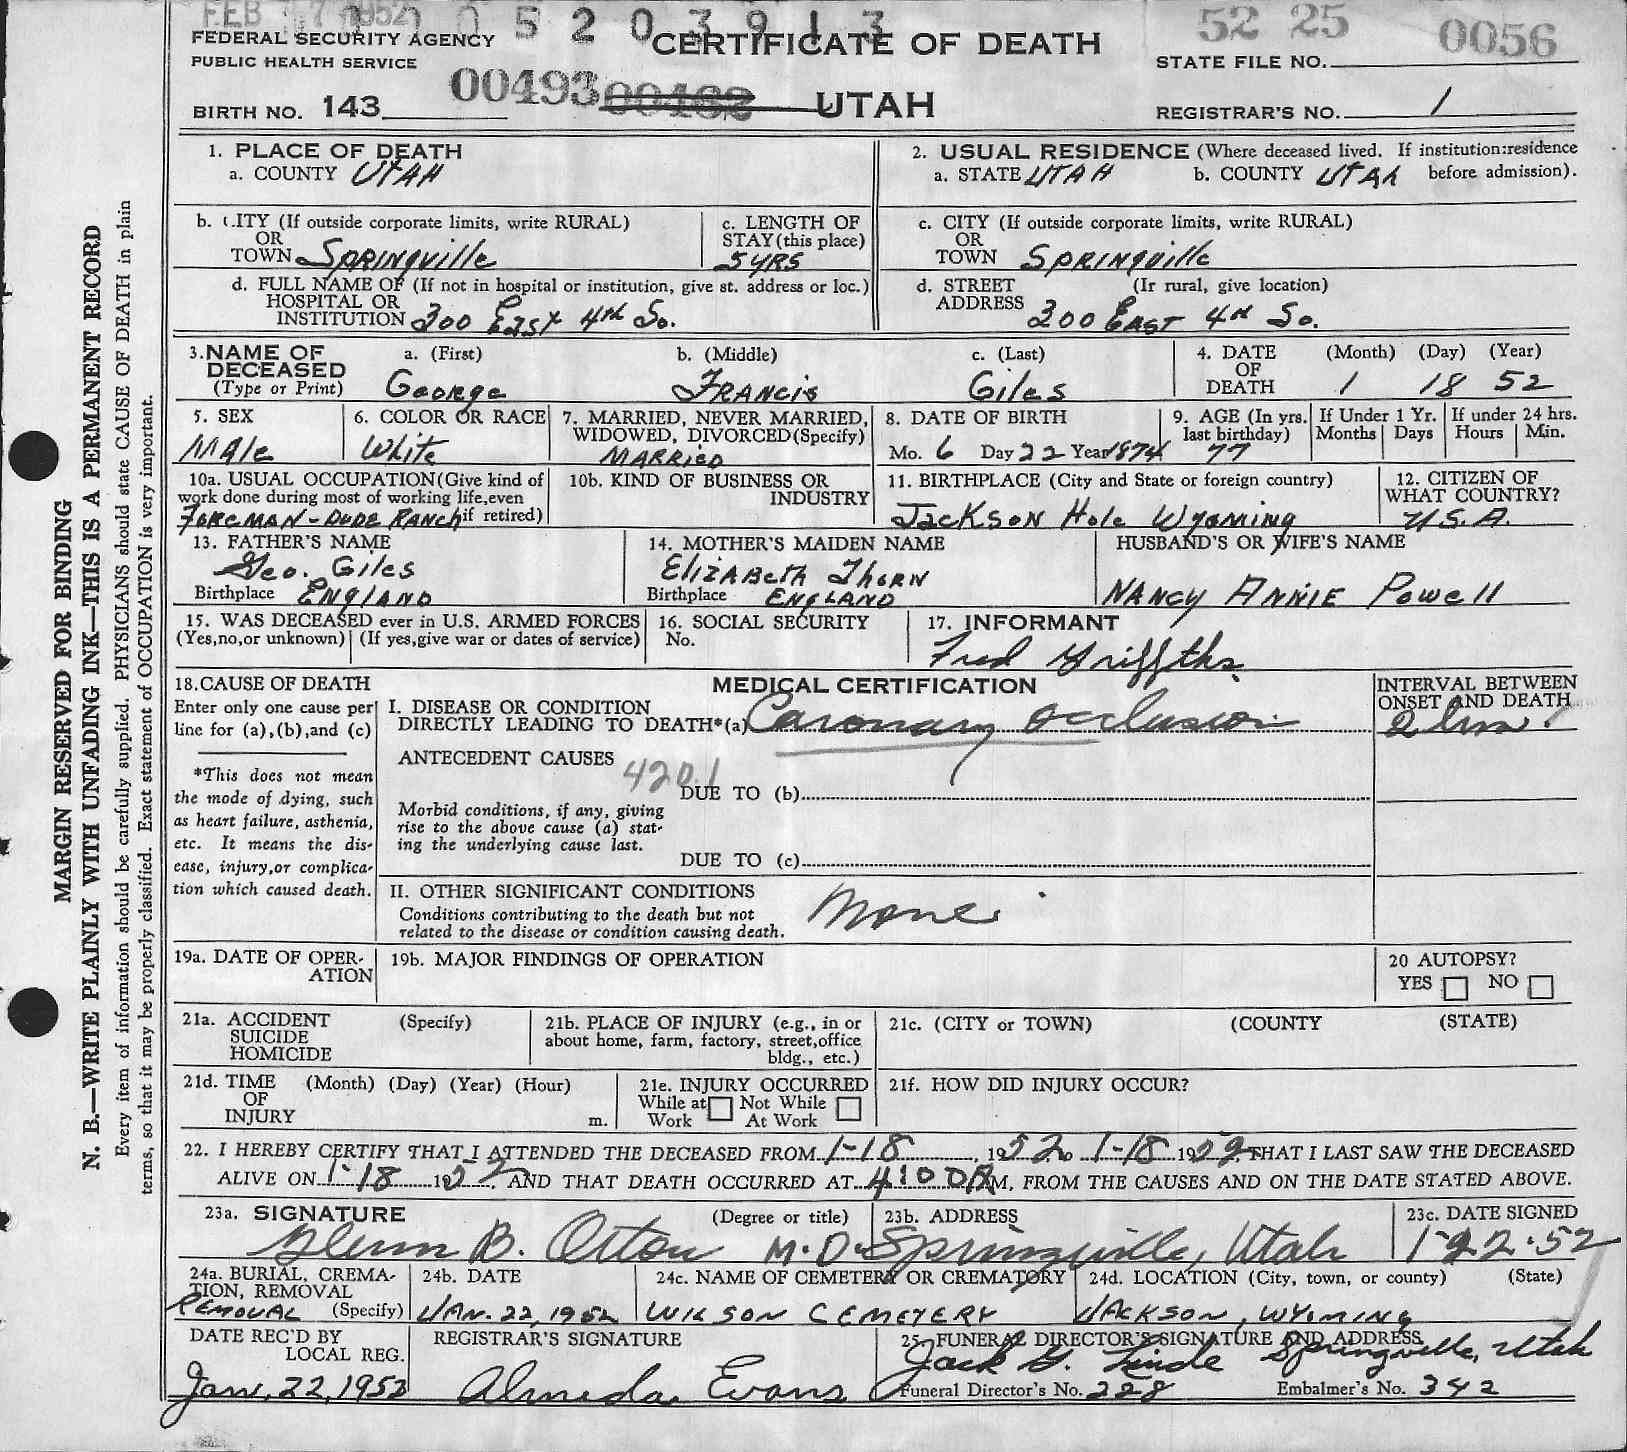 FEB 7 1952
52 0 3 9 1 3
52 25
0056
FEDERAL SECURITY AGENCY
CERTIFICATE OF DEATH
PUBLIC HEALTH SERVICE
STATE FILE NO.
00493
BIRTH NO. 143
UTAH
REGISTRAR'S NO. 1
MARGIN RESERVED FOR BINDING
N. B.—WRITE PLAINLY WITH UNFADING INK—THIS IS A PERMANENT RECORD
Every item of information should be carefully supplied. PHYSICIANS should state CAUSE OF DEATH in plain
terms, so that it may be properly classified. Exact statement of OCCUPATION is very important.
1. PLACE OF DEATH
a. COUNTY UTAH
2. USUAL RESIDENCE (Where deceased lived. If institution:residence
before admission).
a. STATE UTAH b. COUNTY UTAH
b. CITY (If outside corporate limits, write RURAL)
OR
TOWN Springville
c. LENGTH OF
STAY (this place)
5 YRS
c. CITY (If outside corporate limits, write RURAL)
OR
TOWN Springville
d. FULL NAME OF (If not in hospital or institution, give st. address or loc.)
HOSPITAL OR
INSTITUTION 300 East 4th So.
d. STREET (Ir rural, give location)
ADDRESS 300 East 4th So.
3. NAME OF
DECEASED
(Type or Print)
a. (First) b. (Middle) c. (Last)
George Francis Giles
4. DATE
OF
DEATH
(Month) (Day) (Year)
1 18 52
5. SEX
Male
6. COLOR OR RACE
White
7. MARRIED, NEVER MARRIED,
WIDOWED, DIVORCED(Specify)
MARRIED
8. DATE OF BIRTH
Mo. 6 Day 22 Year 1874
9. AGE (In yrs.
last birthday)
77
If Under 1 Yr.
Months Days
If under 24 hrs.
Hours Min.
10a. USUAL OCCUPATION(Give kind of
work done during most of working life,even
if retired)
FOREMAN - DUDE RANCH
10b. KIND OF BUSINESS OR
INDUSTRY
11. BIRTHPLACE (City and State or foreign country)
Jackson Hole Wyoming
12. CITIZEN OF
WHAT COUNTRY?
U.S.A.
13. FATHER'S NAME
Geo. Giles
Birthplace ENGLAND
14. MOTHER'S MAIDEN NAME
Elizabeth Thorn
Birthplace ENGLAND
HUSBAND'S OR WIFE'S NAME
NANCY ANNIE Powell
15. WAS DECEASED ever in U.S. ARMED FORCES
(Yes,no,or unknown) (If yes,give war or dates of service)
16. SOCIAL SECURITY
No.
17. INFORMANT
Fred Griffiths
18. CAUSE OF DEATH
Enter only one cause per
line for (a),(b),and (c)
*This does not mean
the mode of dying, such
as heart failure, asthenia,
etc. It means the dis-
ease, injury,or complica-
tion which caused death.
MEDICAL CERTIFICATION
INTERVAL BETWEEN
ONSET AND DEATH
I. DISEASE OR CONDITION
DIRECTLY LEADING TO DEATH*(a) Coronary occlusion
2 hrs.
ANTECEDENT CAUSES
4201
DUE TO (b)
Morbid conditions, if any, giving
rise to the above cause (a) stat-
ing the underlying cause last.
DUE TO (c)
II. OTHER SIGNIFICANT CONDITIONS
Conditions contributing to the death but not
related to the disease or condition causing death.
None
19a. DATE OF OPER-
ATION
19b. MAJOR FINDINGS OF OPERATION
20 AUTOPSY?
YES NO
21a. ACCIDENT
SUICIDE
HOMICIDE
(Specify)
21b. PLACE OF INJURY (e.g., in or
about home, farm, factory, street,office
bldg., etc.)
21c. (CITY or TOWN) (COUNTY (STATE)
21d. TIME
OF
INJURY
(Month) (Day) (Year) (Hour)
m.
21e. INJURY OCCURRED
While at Not While
Work At Work
21f. HOW DID INJURY OCCUR?
22. I HEREBY CERTIFY THAT I ATTENDED THE DECEASED FROM 1-18, 1952 to 1-18 1952, THAT I LAST SAW THE DECEASED
ALIVE ON 1-18 1952, AND THAT DEATH OCCURRED AT 4:00 P M, FROM THE CAUSES AND ON THE DATE STATED ABOVE.
23a. SIGNATURE (Degree or title)
Glenn B. Orton M.D.
23b. ADDRESS
Springville, Utah
23c. DATE SIGNED
1-22-52
24a. BURIAL, CREMA-
TION, REMOVAL
REMOVAL (Specify)
24b. DATE
JAN. 22, 1952
24c. NAME OF CEMETERY OR CREMATORY
WILSON CEMETERY
24d. LOCATION (City, town, or county) (State)
JACKSON, WYOMING
DATE REC'D BY
LOCAL REG.
Jan. 22, 1952
REGISTRAR'S SIGNATURE
Almeda Evans
25. FUNERAL DIRECTOR'S SIGNATURE AND ADDRESS
Jack Springville, Utah
Funeral Director's No. 228 Embalmer's No. 342